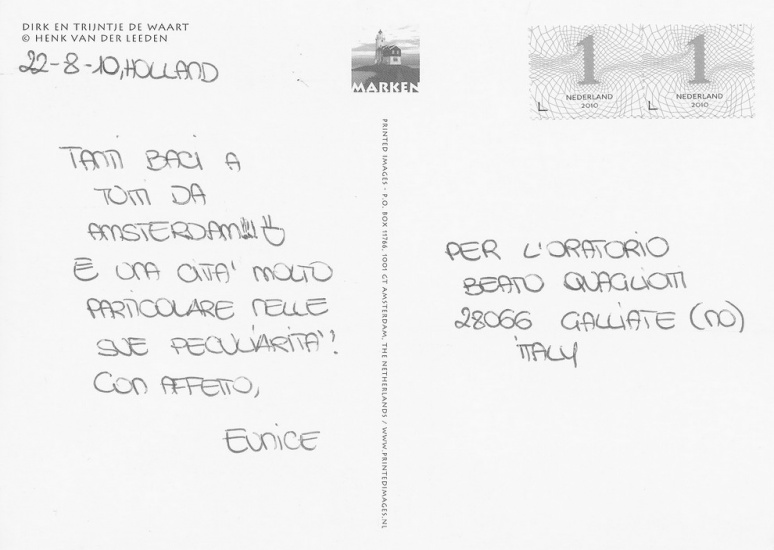 DIRK EN TRIJNTJE DE WAART
© HENK VAN DER LEEDEN
22-8-10, HOLLAND
MARKEN
1 1
NEDERLAND NEDERLAND
2010 2010
L L
TANTI BACI A
TUTTI DA
AMSTERDAM!!!
E UNA CITTA' MOLTO
PARTICOLARE NELLE
SUE PECULIARITA'!
CON AFFETTO,
EUNICE
PRINTED IMAGES · P.O. BOX 11766, 1001 CT AMSTERDAM, THE NETHERLANDS / WWW.PRINTEDIMAGES.NL
PER L'ORATORIO
BEATO QUAGLIOTTI
28066 GALLIATE (NO)
ITALY